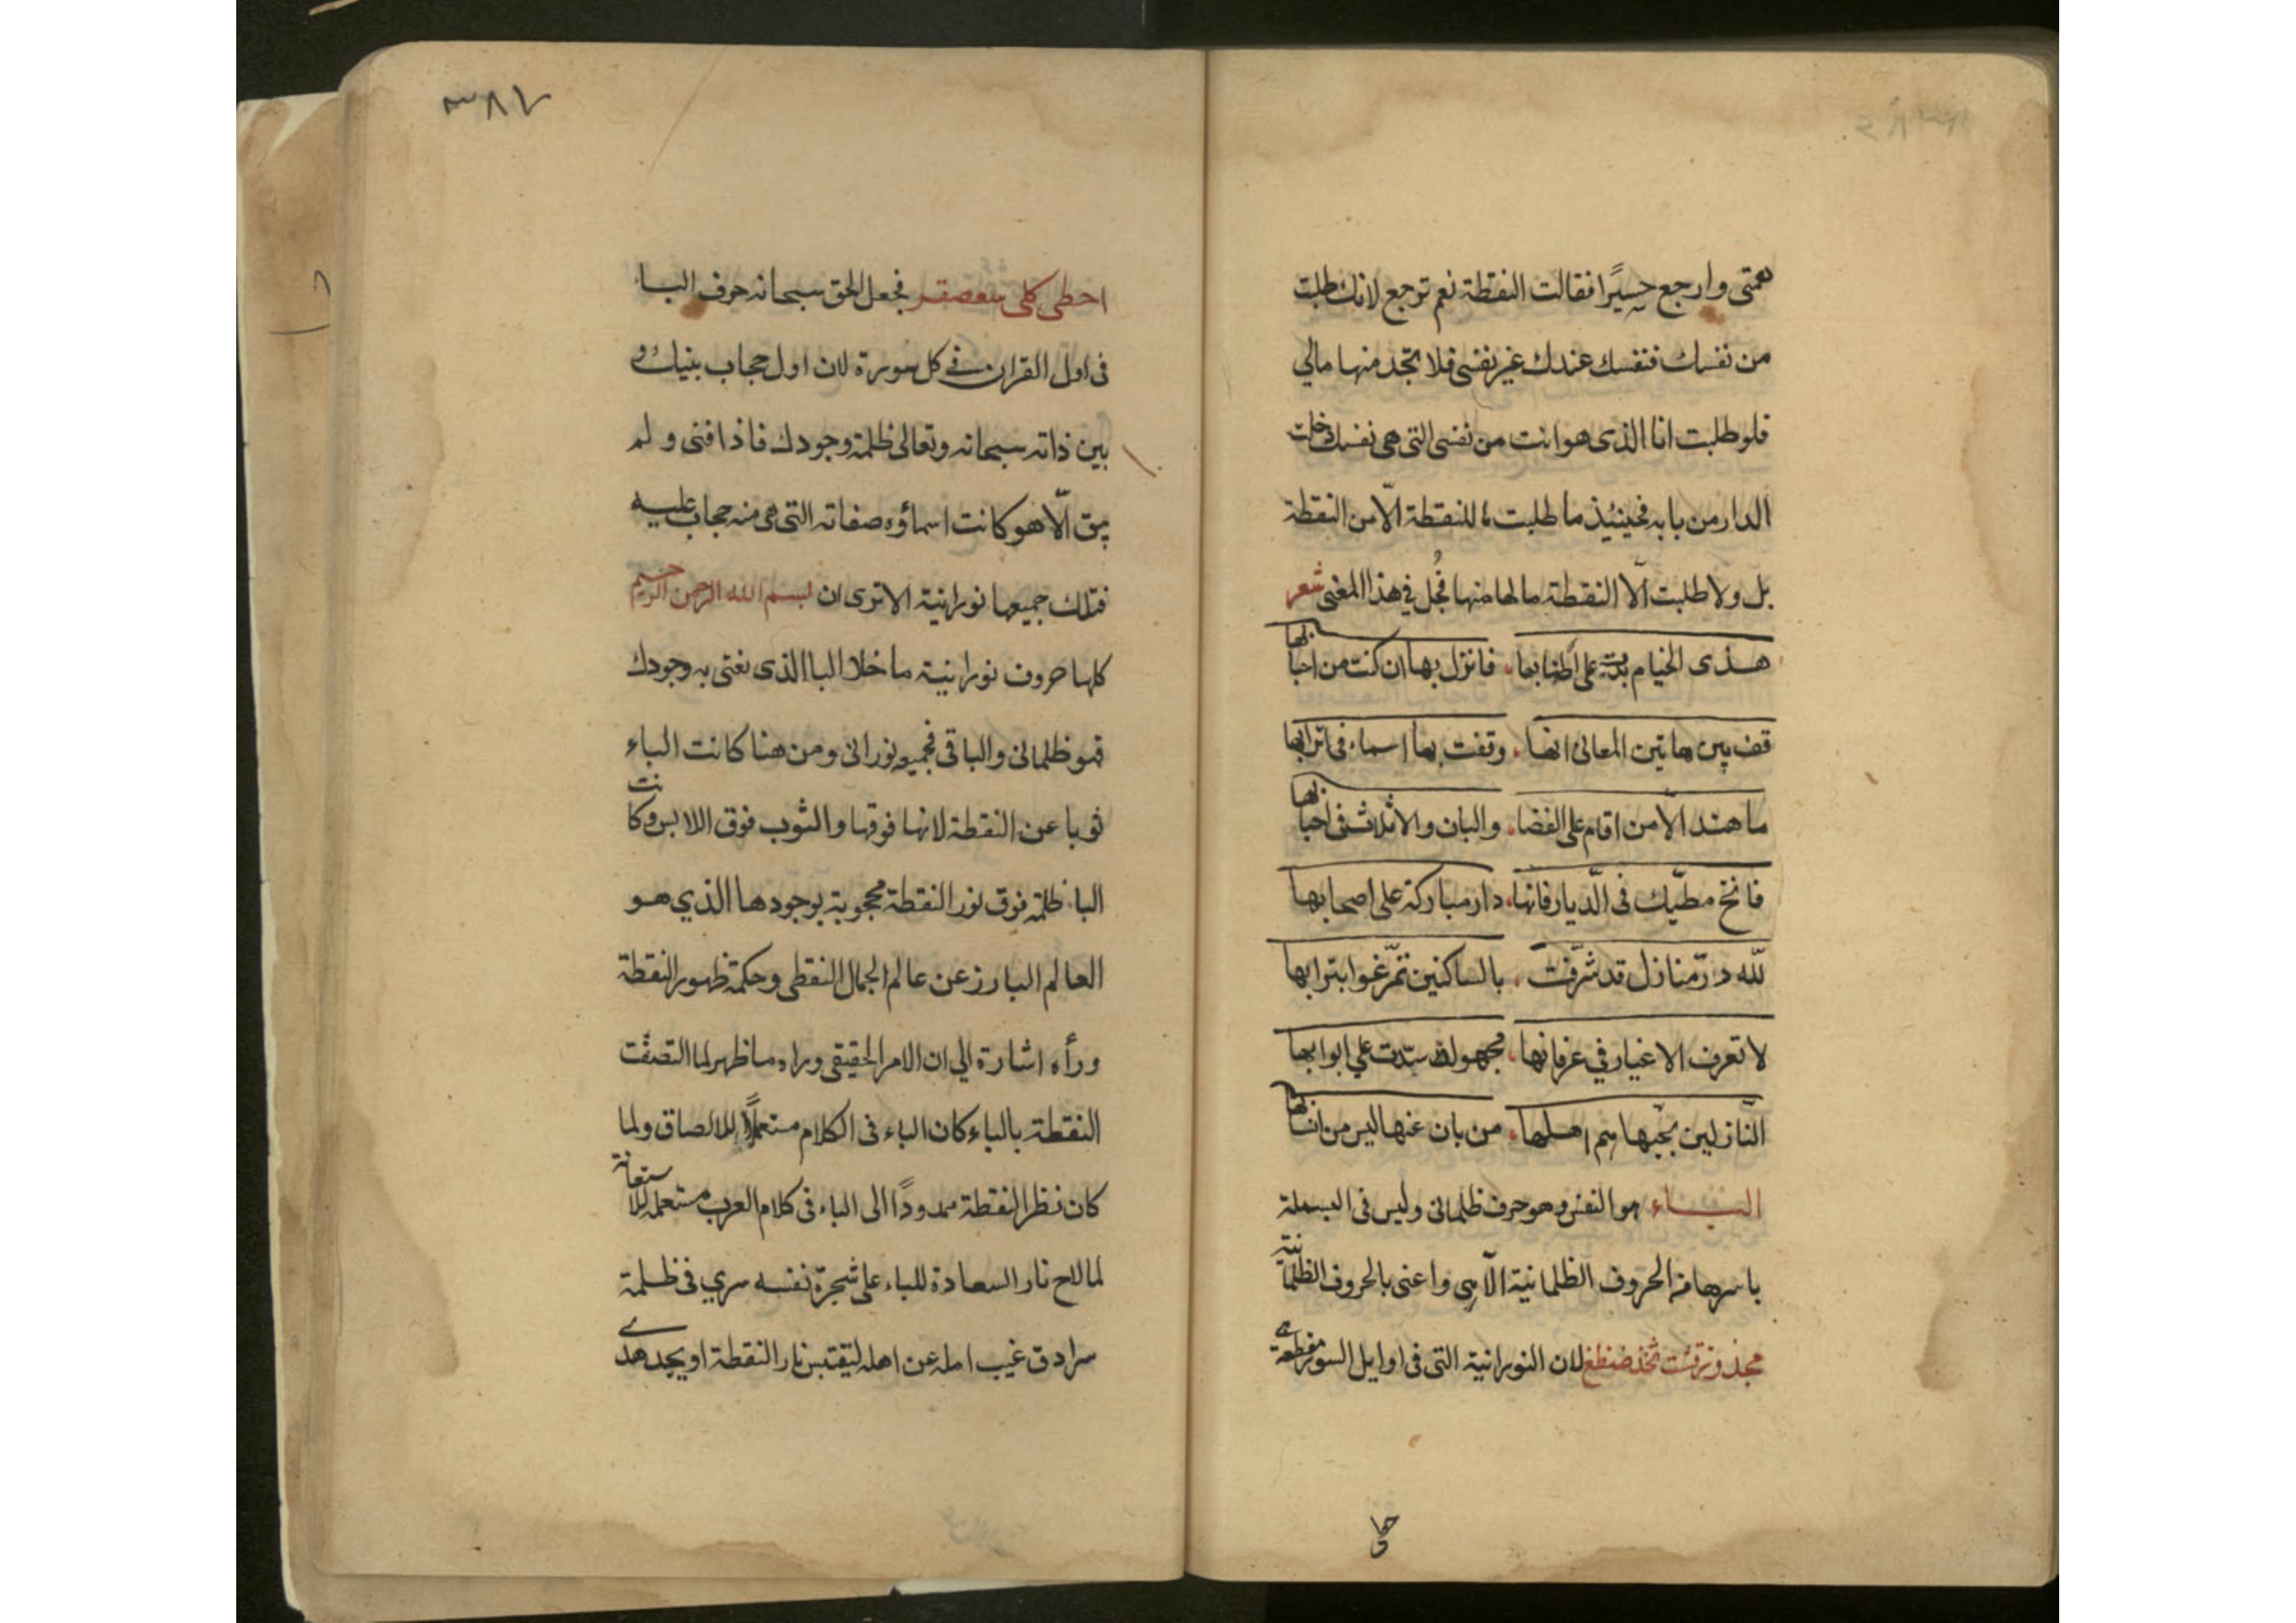 همتى وارجع حسيرًا فقالت النقطة نعم ترجع لانك طلبت
من نفسك فنفسك عندك غير نفسى فلا تجد منها مالي
فلو طلبت انا الذى هو انت من نفسى التى هى نفسك دخلت
الدار من بابه فحينئذ ما طلبت ما للنقطة الّا من النقطة
بل ولا طلبت الّا النقطة ما لها منها فجُل في هذا المعنى شعر
هذى الخيام بدت على اطنابها فانزل بها ان كنت من احبابها
قف بين هاتين المعانى انها وقفت بها اسماء فى اترابها
ما هند الّا من اقام على الفضا والبان والاثلاث فى احبابها
فانخ مطيّك فى الدّيار فانها دار مباركة على اصحابها
للّه درّ منازل قد شرّفت بالساكنين تمّرغوا بترابها
لا تعرف الاغيار في عرفانها مجهولة سدّت علي ابوابها
النّازلين بحبّها هم اهلها من بان عنها ليس من انسابها
البــاء هو النفس وهو حرف ظلمانى وليس فى البسملة
باسرها من الحروف الظلمانية الّا هى واعنى بالحروف الظلمانيّة
لان النورانية التى فى اوايل السور مقطعة
حطى
٣٨٧
فجعل الحق سبحانه حرف البا
فى اول القران في كل سورة لان اول حجاب بنيك و
بين ذاته سبحانه وتعالى ظلمة وجودك فاذا فنى ولم
يبق الّا هو كانت اسماؤه وصفاته التى هى منه حجاب عليه
فتلك جميعها نورانية الا ترى ان بسم الله الرحمن الرحيم
كلها حروف نورانية ما خلا البا الذى نعتى به وجودك
فهو ظلمانى والباقى فجميعه نورانى ومن هنا كانت الباء
ثوبا عن النقطة لانها فوقها والثوب فوق اللابس وكانت
البا ظلمة فوق نور النقطة محجوبة بوجودها الذي هو
العالم البارز عن عالم الجمال النقطى وحكمة ظهور النقطة
ورأه اشارة الي ان الامر الحقيقى وراه ما ظهر لما التصقت
النقطة بالباء كان الباء فى الكلام مستعملًا للالصاق ولما
كان نظر النقطة ممدودًا الى الباء فى كلام العرب مستعمله للاستعانة
لما لاح نار السعادة للباء على شجرة نفسه سري فى ظلمة
سرادق غيب امله عن اهله ليقتبس نار النقطة او يجد هدى